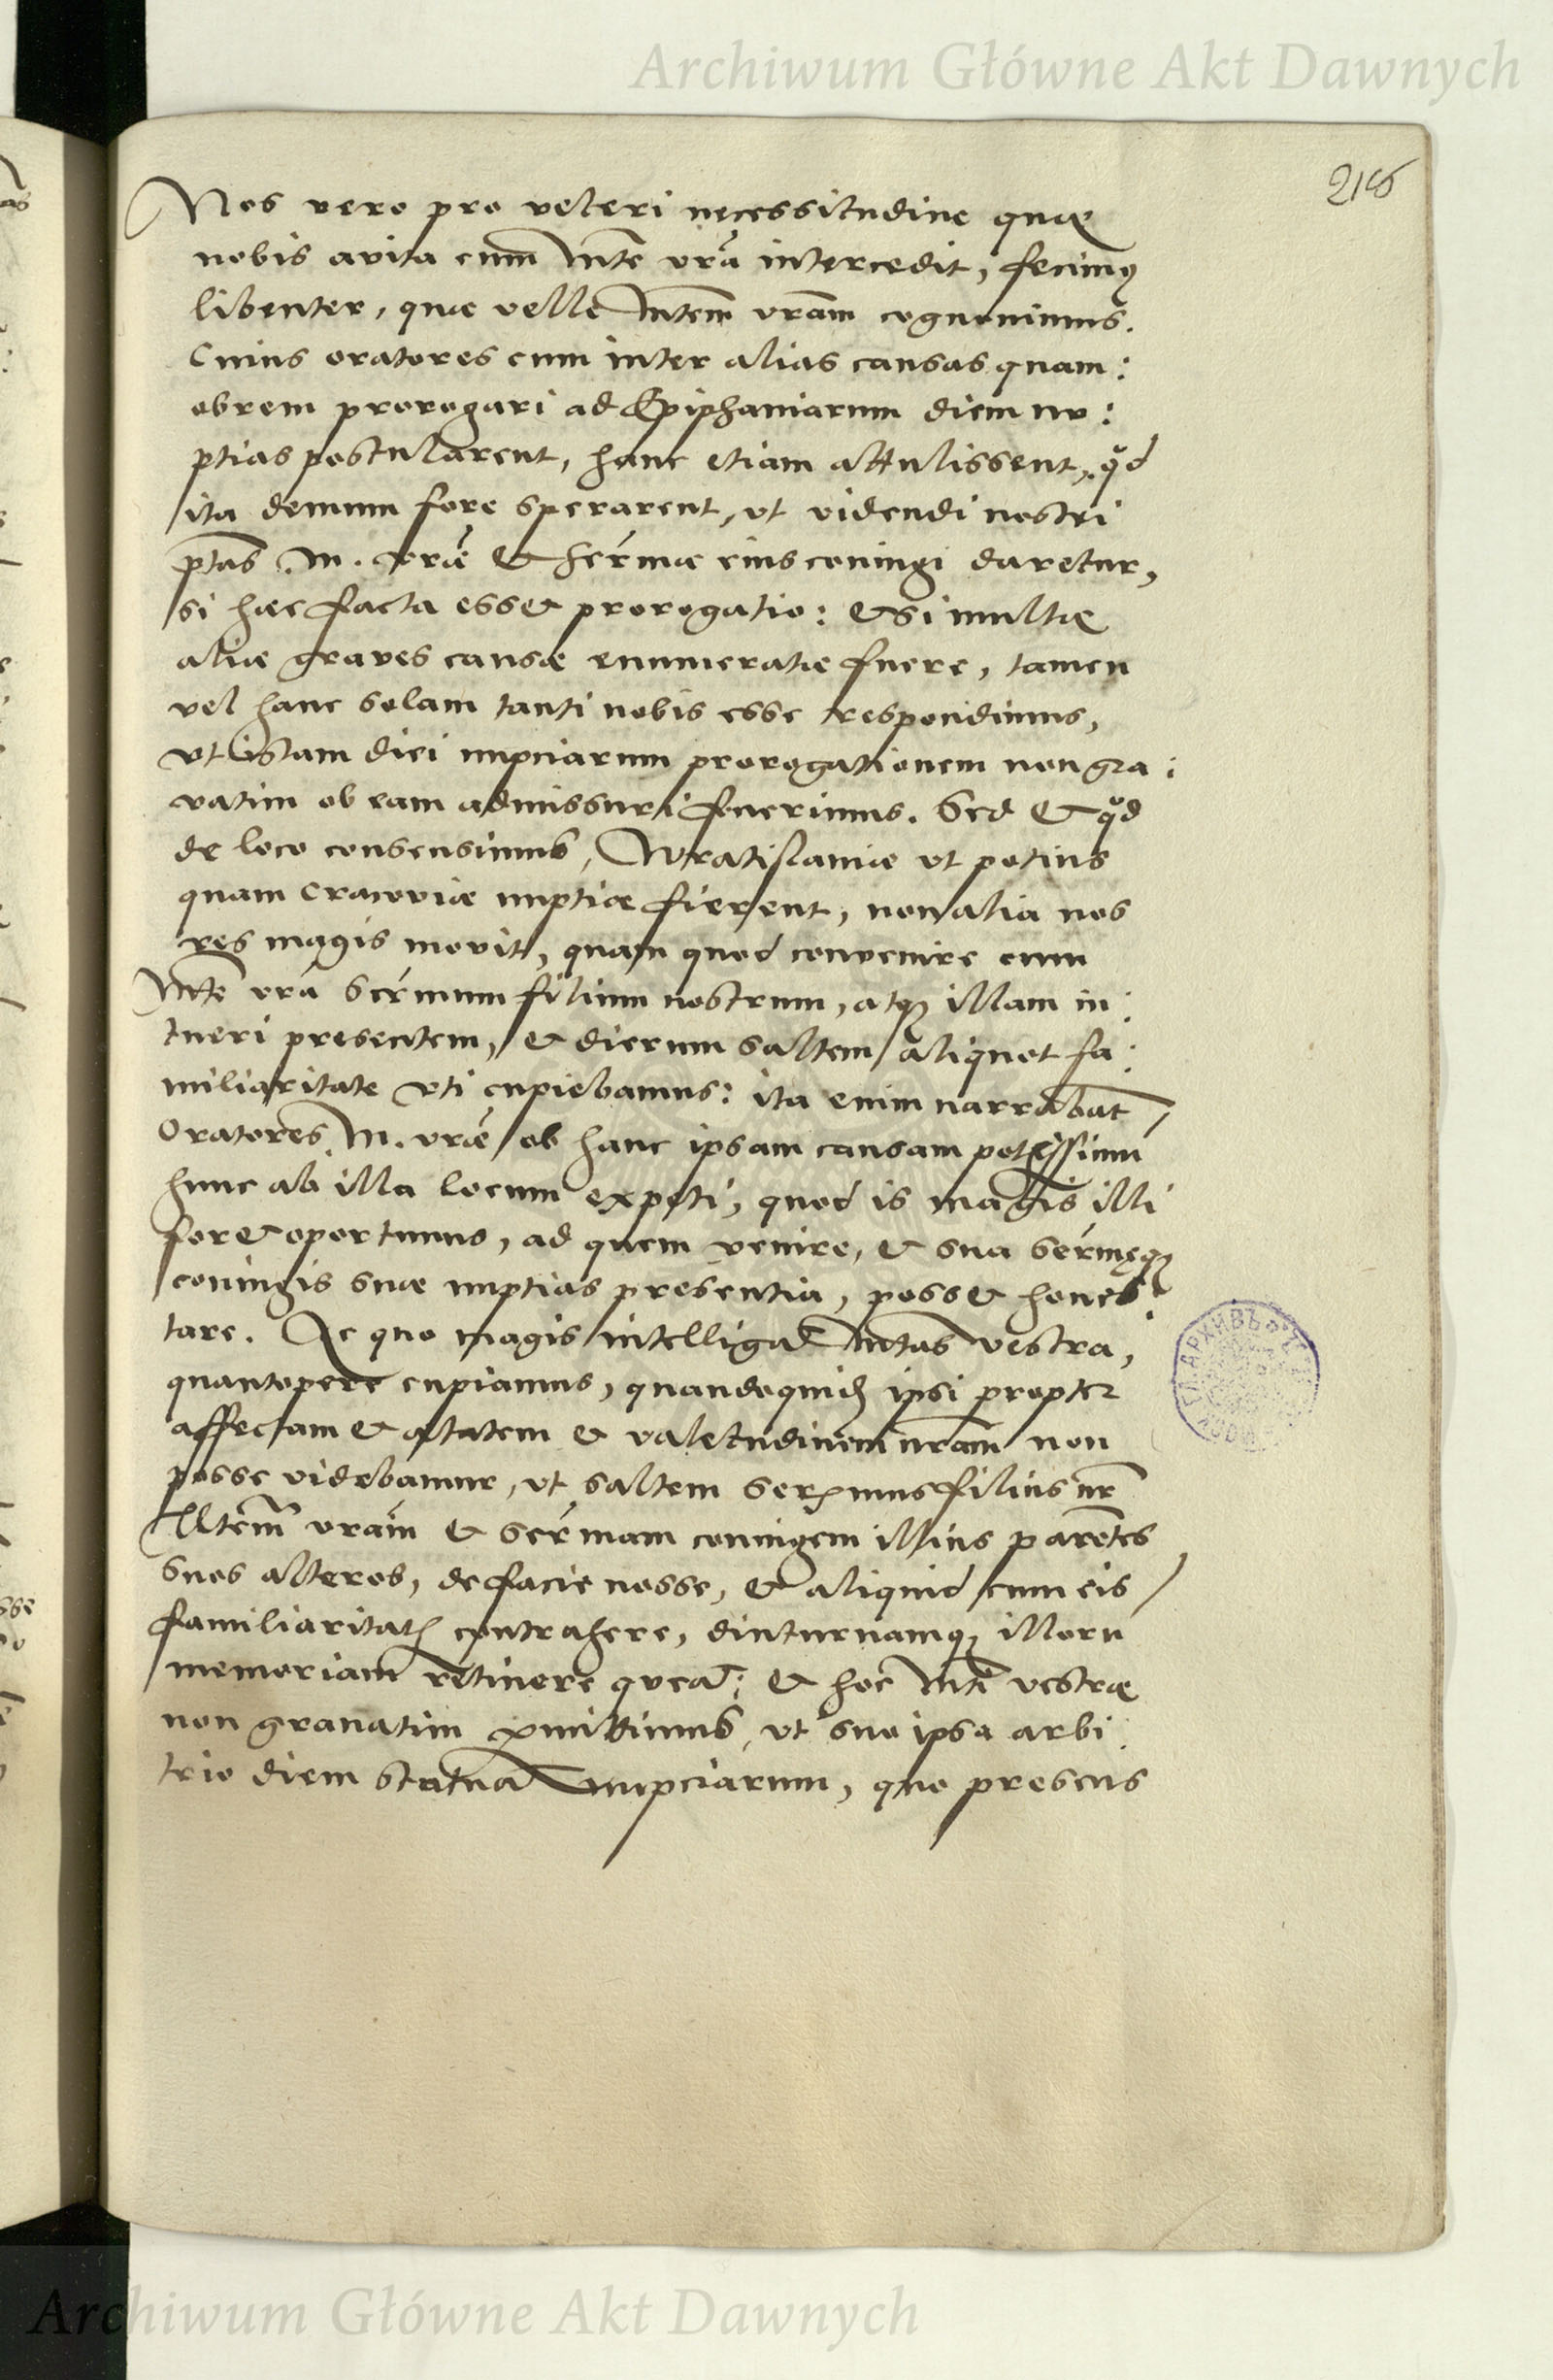 Archiwum Główne Akt Dawnych
218
Nos vero pro veteri necessitudine quæ
nobis avita cum Mte vrā intercedit, fecimꝰ
libenter, quæ velle Mtem vram cognovimus.
Cuius oratores cum inter alias causas quam:
obrem prorogari ad Epiphaniarum diem nu:
ptias postularent, hanc etiam attulissent, qd
ita demum fore sperarent, ut videndi nostri
ptas M. vræ & sermæ eius coniugi daretur,
si hæc facta esset prorogatio: etsi multæ
aliæ graves causæ enumeratæ fuere, tamen
vel hanc solam tanti nobis esse respondimus,
ut istam diei nupciarum prorogationem non gra:
vatim ob eam admissuri fuerimus. Sed & qd
de loco consensimus, Wratislaviæ ut potius
quam Cracoviæ nuptiæ fierent, non alia nos
res magis movit, quam quod convenire cum
Mte vrā sermum filium nostrum, atqꝫ illam in:
tueri presentem, & dierum saltem aliquot fa:
miliaritate uti cupiebamus: ita enim narrabāt
Oratores M. vræ ob hanc ipsam causam potissimū
hunc ab illa locum expeti, quod is magis illi
foret oportunus, ad quem venire, & sua sermęqꝫ
coniugis suæ nuptias presentia, posset hones:
tare. Ac quo magis intelligat Mtas vestra,
quantopere cupiamus, quandoquidē ipsi propter
affectam & ętatem & valetudinem nram non
posse videbamur, ut saltem serenmus filius nr
Mtem vram & sermam coniugem illius parētes
suos alteros, de facie nosse, & aliquid cum eis
familiaritatis contrahere, diuturnamqꝫ illorū
memoriam retinere queat: & hoc Mti vestræ
non gravatim permittimus, ut suo ipsa arbi:
trio diem statuat nupciarum, quo presens
Archiwum Główne Akt Dawnych